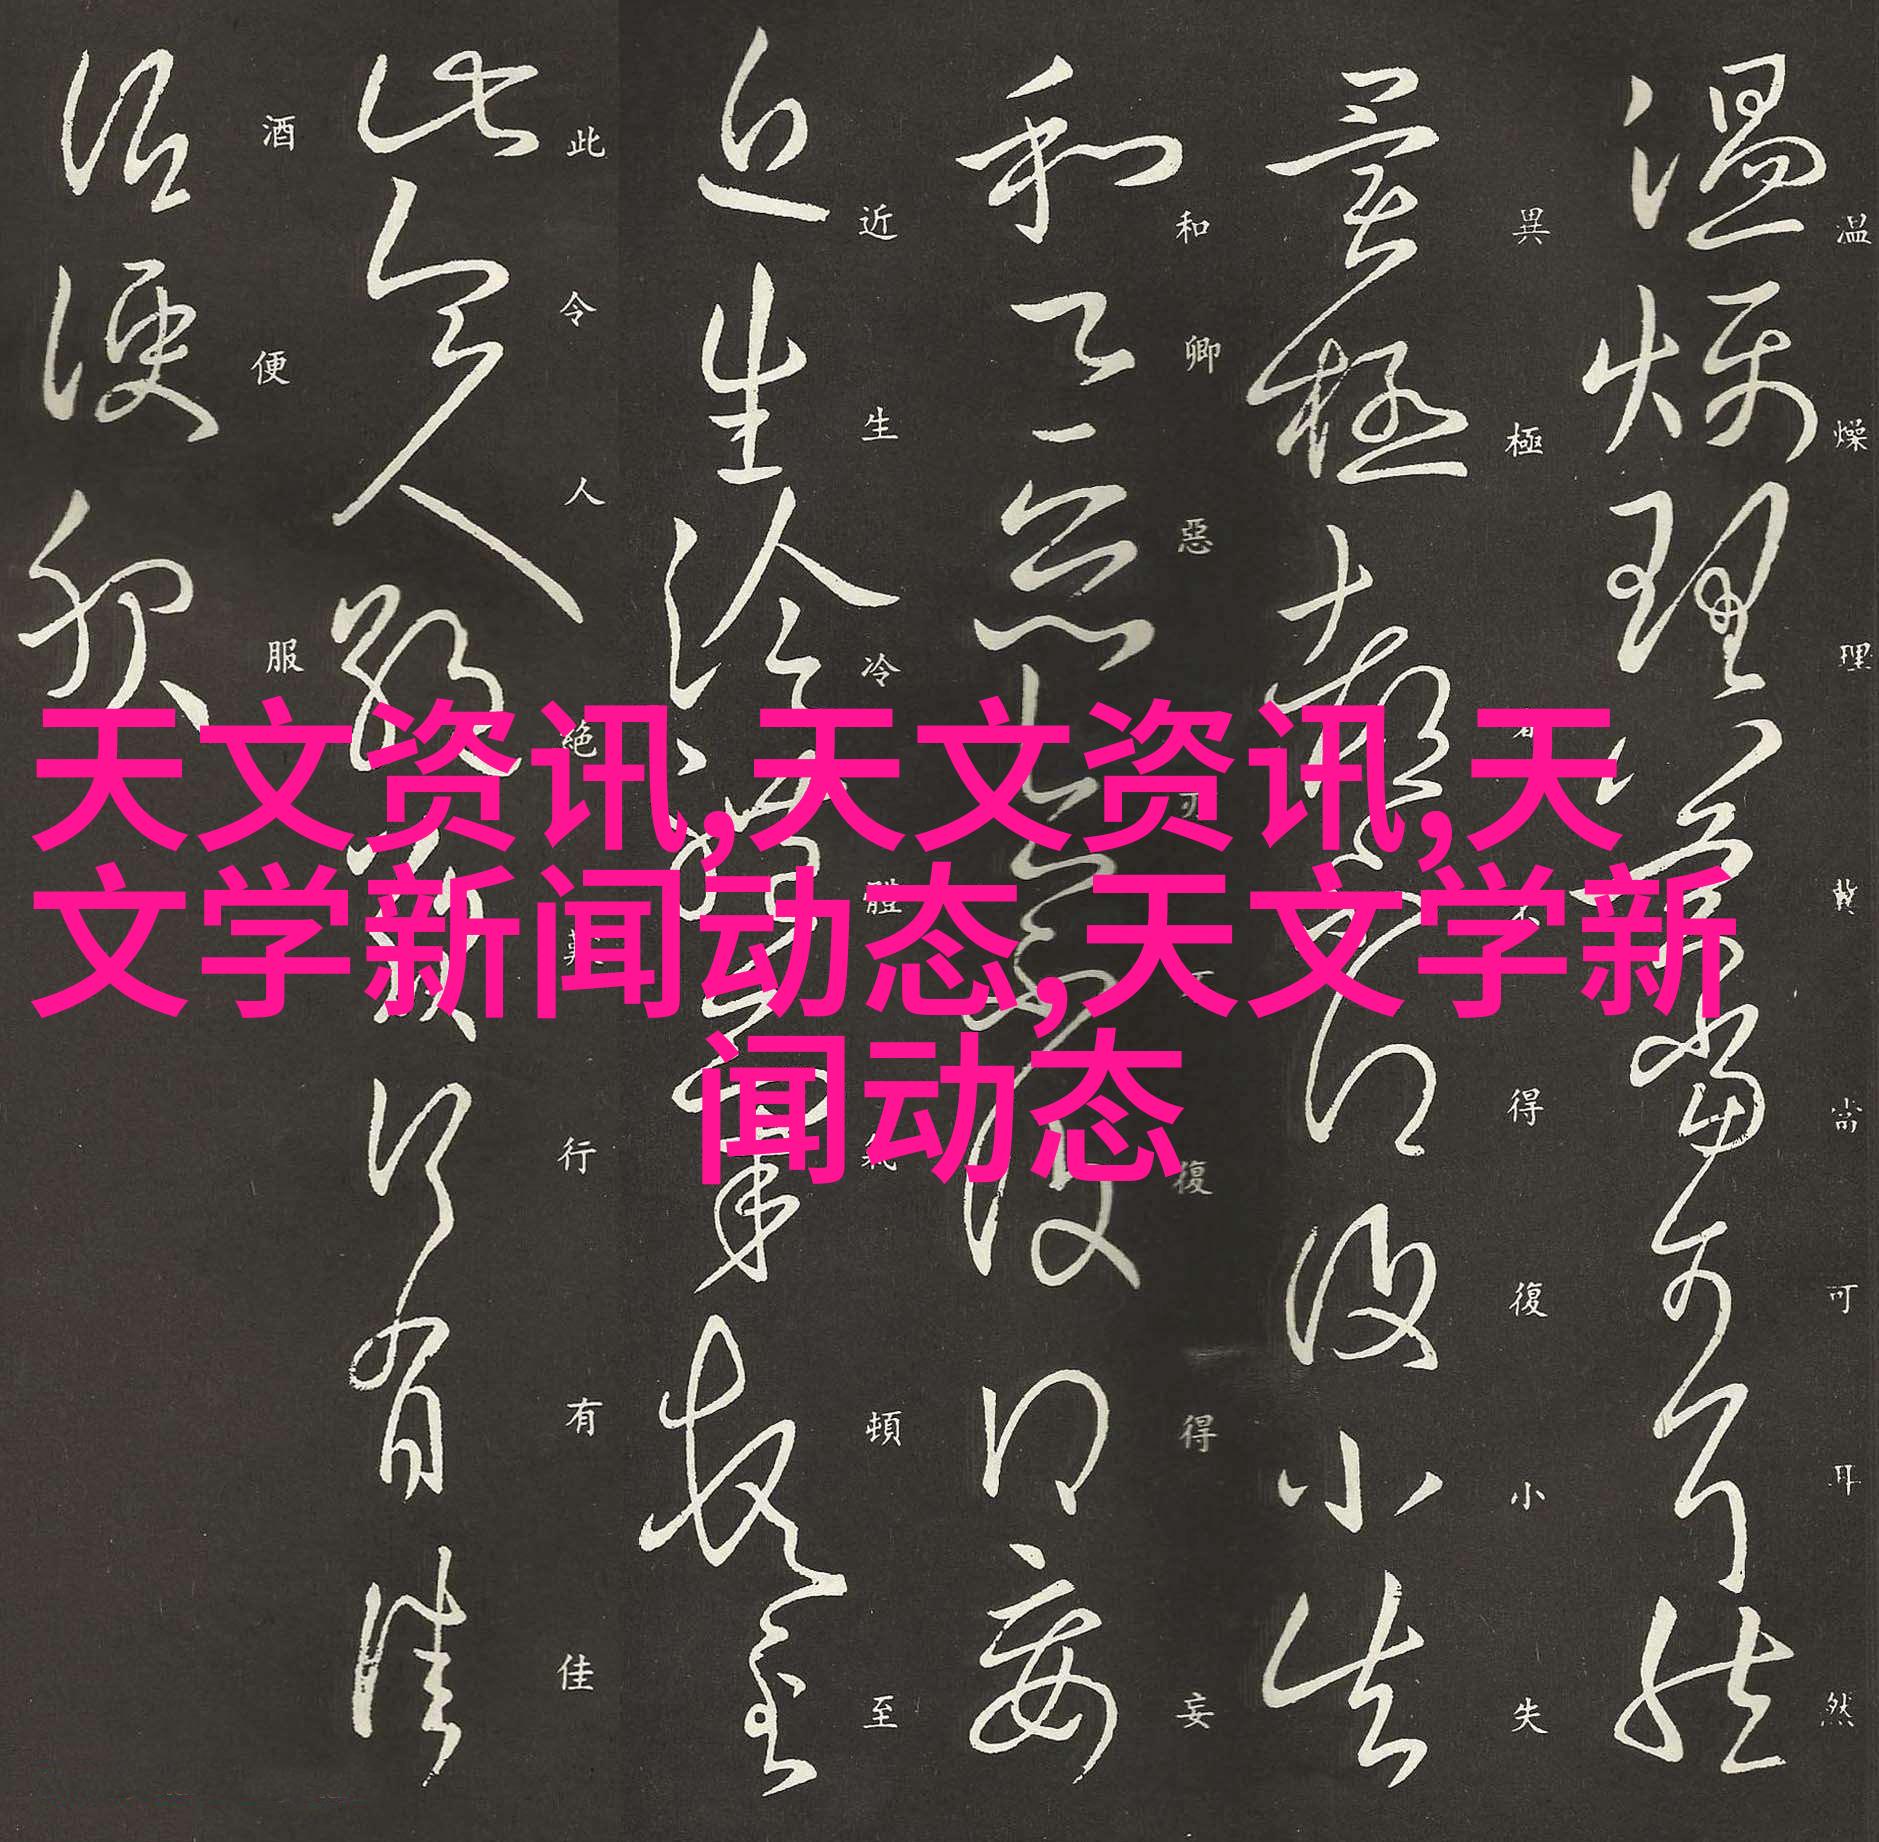 天文资讯,天文资讯,天
文学新闻动态,天文学新
闻动态
温燥理冀當可耳然
異極不得復小失
和卿惡復得妄
近生冷體氣頓至
此令人絶歎行有佳
酒便服